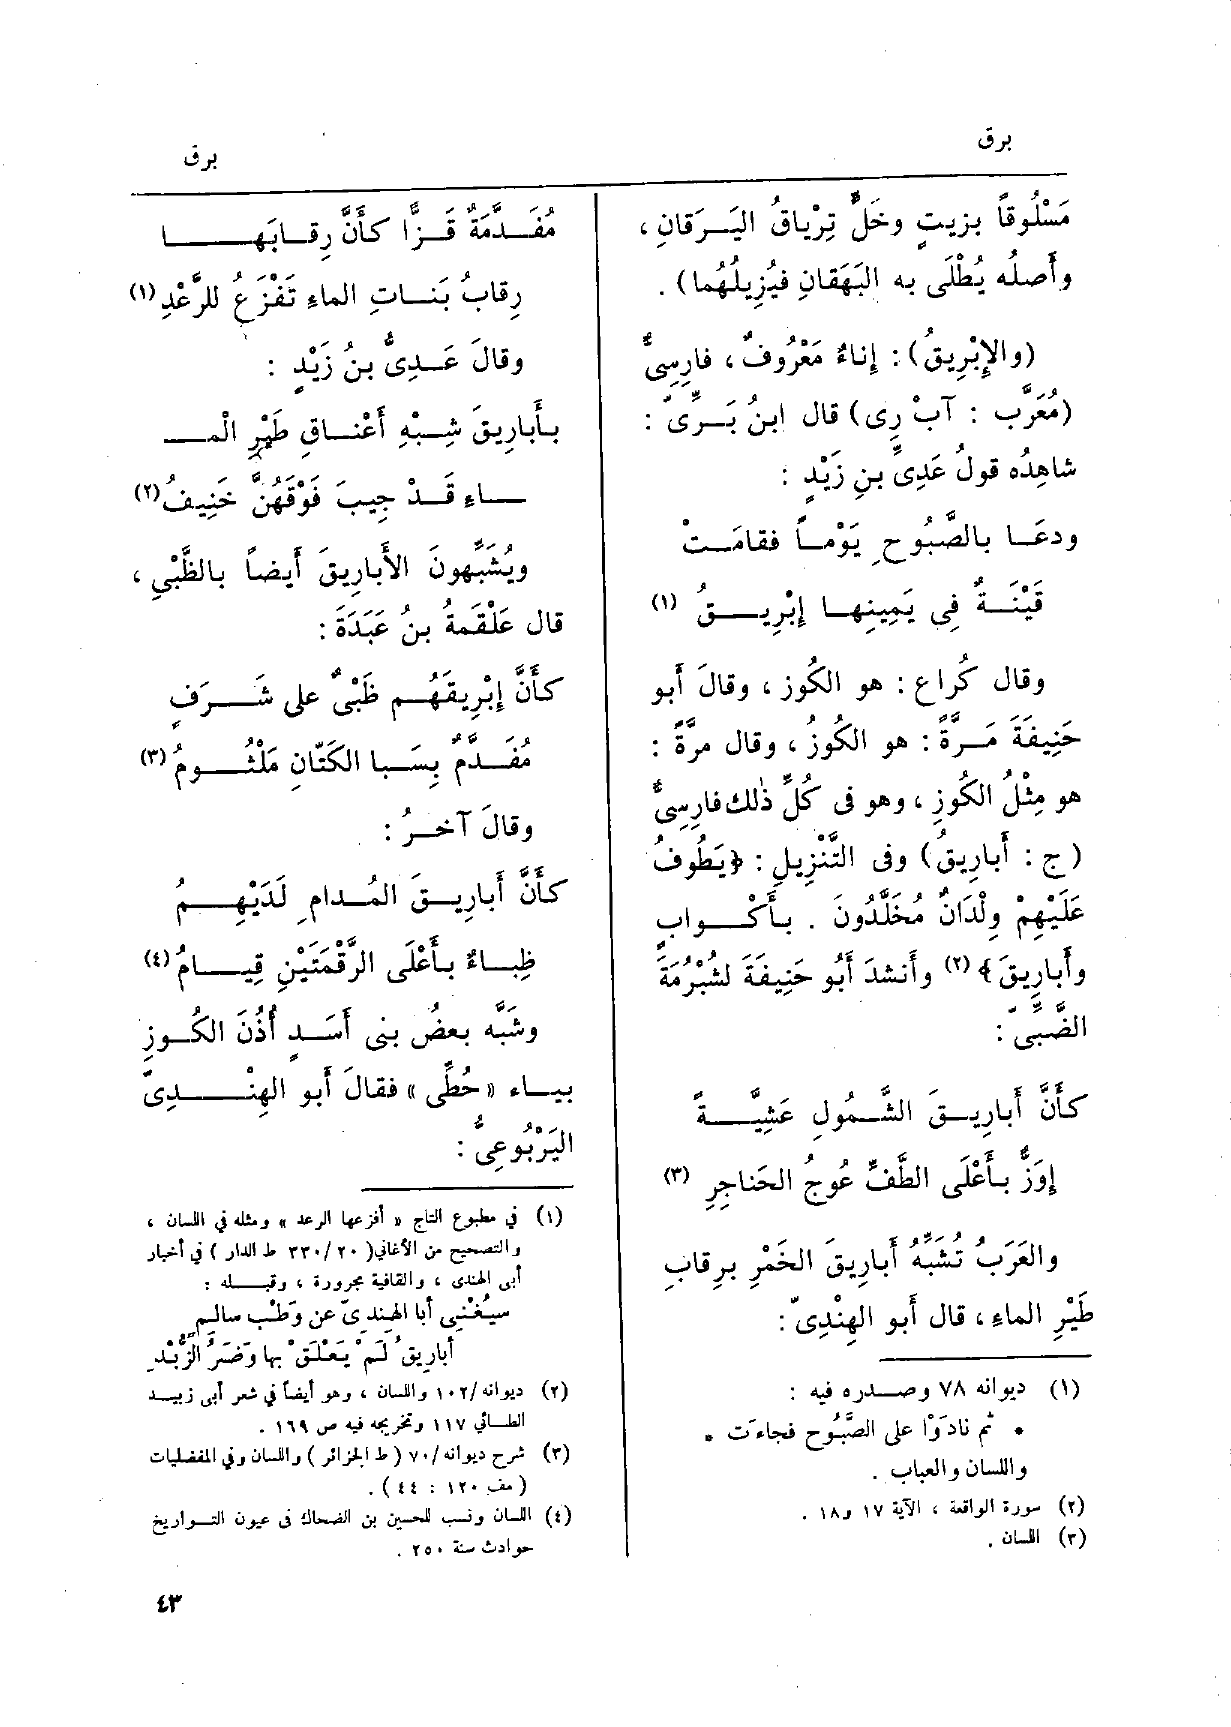 برق
برق
مَسْلُوقاً بزيتٍ وخَلٍّ تِرْياقُ اليَرَقانِ ،
وأَصلُه يُطْلَى به البَهَقانِ فيُزِيلُهُما) .
(والإِبْرِيقُ): إِناءٌ مَعْرُوفٌ ، فارِسِىٌّ
(مُعَرَّب : آبْ رِى) قال ابنُ بَرِّىّ :
شاهِدُه قولُ عَدِىِّ بنِ زَيْدٍ :
ودعَا بالصَّبُوحِ يَوْماً فقامَتْ
قَيْنَةٌ فِى يَمِينِها إِبْرِيقُ (١)
وقال كُراع : هو الكُوز ، وقالَ أَبو
حَنِيفَةَ مَرَّةً : هو الكُوزُ ، وقال مرَّةً :
هو مِثْلُ الكُوزِ ، وهو فى كُلِّ ذٰلك فارِسِىٌّ
(ج : أَبارِيقُ) وفى التَّنْزِيلِ : ﴿يَطُوفُ
عَلَيْهِمْ وِلْدَانٌ مُخَلَّدُونَ . بأَكْوابٍ
وأَبارِيقَ﴾ (٢) وأَنشدَ أَبُو حَنِيفَةَ لشُبْرُمَةَ
الضَّبِّىِّ :
كأَنَّ أَبارِيقَ الشَّمُولِ عَشِيَّةً
إِوَزٌّ بأَعْلَى الطَّفِّ عُوجُ الحَناجِرِ (٣)
والعَرَبُ تُشَبِّهُ أَبارِيقَ الخَمْرِ برِقابِ
طَيْرِ الماءِ ، قال أَبو الهِنْدِىّ :
(١) ديوانه ٧٨ وصدره فيه :
* ثم نادَوْا على الصَّبُوحِ فجاءَت *
واللسان والعباب .
(٢) سورة الواقعة ، الآية ١٧ و١٨ .
(٣) اللسان .
مُفَدَّمَةٌ قَزًّا كأَنَّ رِقابَها
رِقابُ بَناتِ الماءِ تَفْزَعُ للرَّعْدِ (١)
وقالَ عَدِىُّ بنُ زَيْدٍ :
بأَبارِيقَ شِبْهِ أَعْناقِ طَيْرِ الْمـ
ـاءِ قَدْ جِيبَ فَوْقَهُنَّ خَنِيفُ (٢)
ويُشَبِّهونَ الأَبارِيقَ أَيضاً بالظَّبْىِ ،
قال عَلْقَمةُ بنُ عَبَدَةَ :
كأَنَّ إِبْرِيقَهُم ظَبْىٌ على شَرَفٍ
مُفَدَّمٌ بِسَبا الكَتّانِ مَلْثُومُ (٣)
وقالَ آخرُ :
كأَنَّ أَبارِيقَ المُدامِ لَدَيْهِمُ
ظِباءٌ بأَعْلَى الرَّقْمَتَيْنِ قِيامُ (٤)
وشَبَّه بعضُ بنى أَسَدٍ أُذُنَ الكُوزِ
بياء «حُطِّى» فقالَ أَبو الهِنْدِىّ
اليَرْبُوعِىُّ :
(١) في مطبوع التاج « أفزعها الرعد » ومثله في اللسان ،
والتصحيح من الأغاني( ٢٠/ ٣٣٠ ط الدار ) في أخبار
أبى الهندى ، والقافية مجرورة ، وقبله :
سيُغْنِى أبا الهِندِىّ عن وَطْب سالِمٍ
أبارِيقُ لَمْ يَعْلَقْ بها وَضَرُ الزُّبْدِ
(٢) ديوانه/ ١٠٢ واللسان ، وهو أيضاً في شعر أبى زبيد
الطائي ١١٧ وتخريجه فيه ص ١٦٩ .
(٣) شرح ديوانه/ ٧٠ (ط الجزائر ) واللسان وفي المفضليات
( مف ١٢٠ : ٤٤ ) .
(٤) اللسان ونسب للحسين بن الضحاك فى عيون التواريخ
حوادث سنة ٢٥٠ .
٤٣